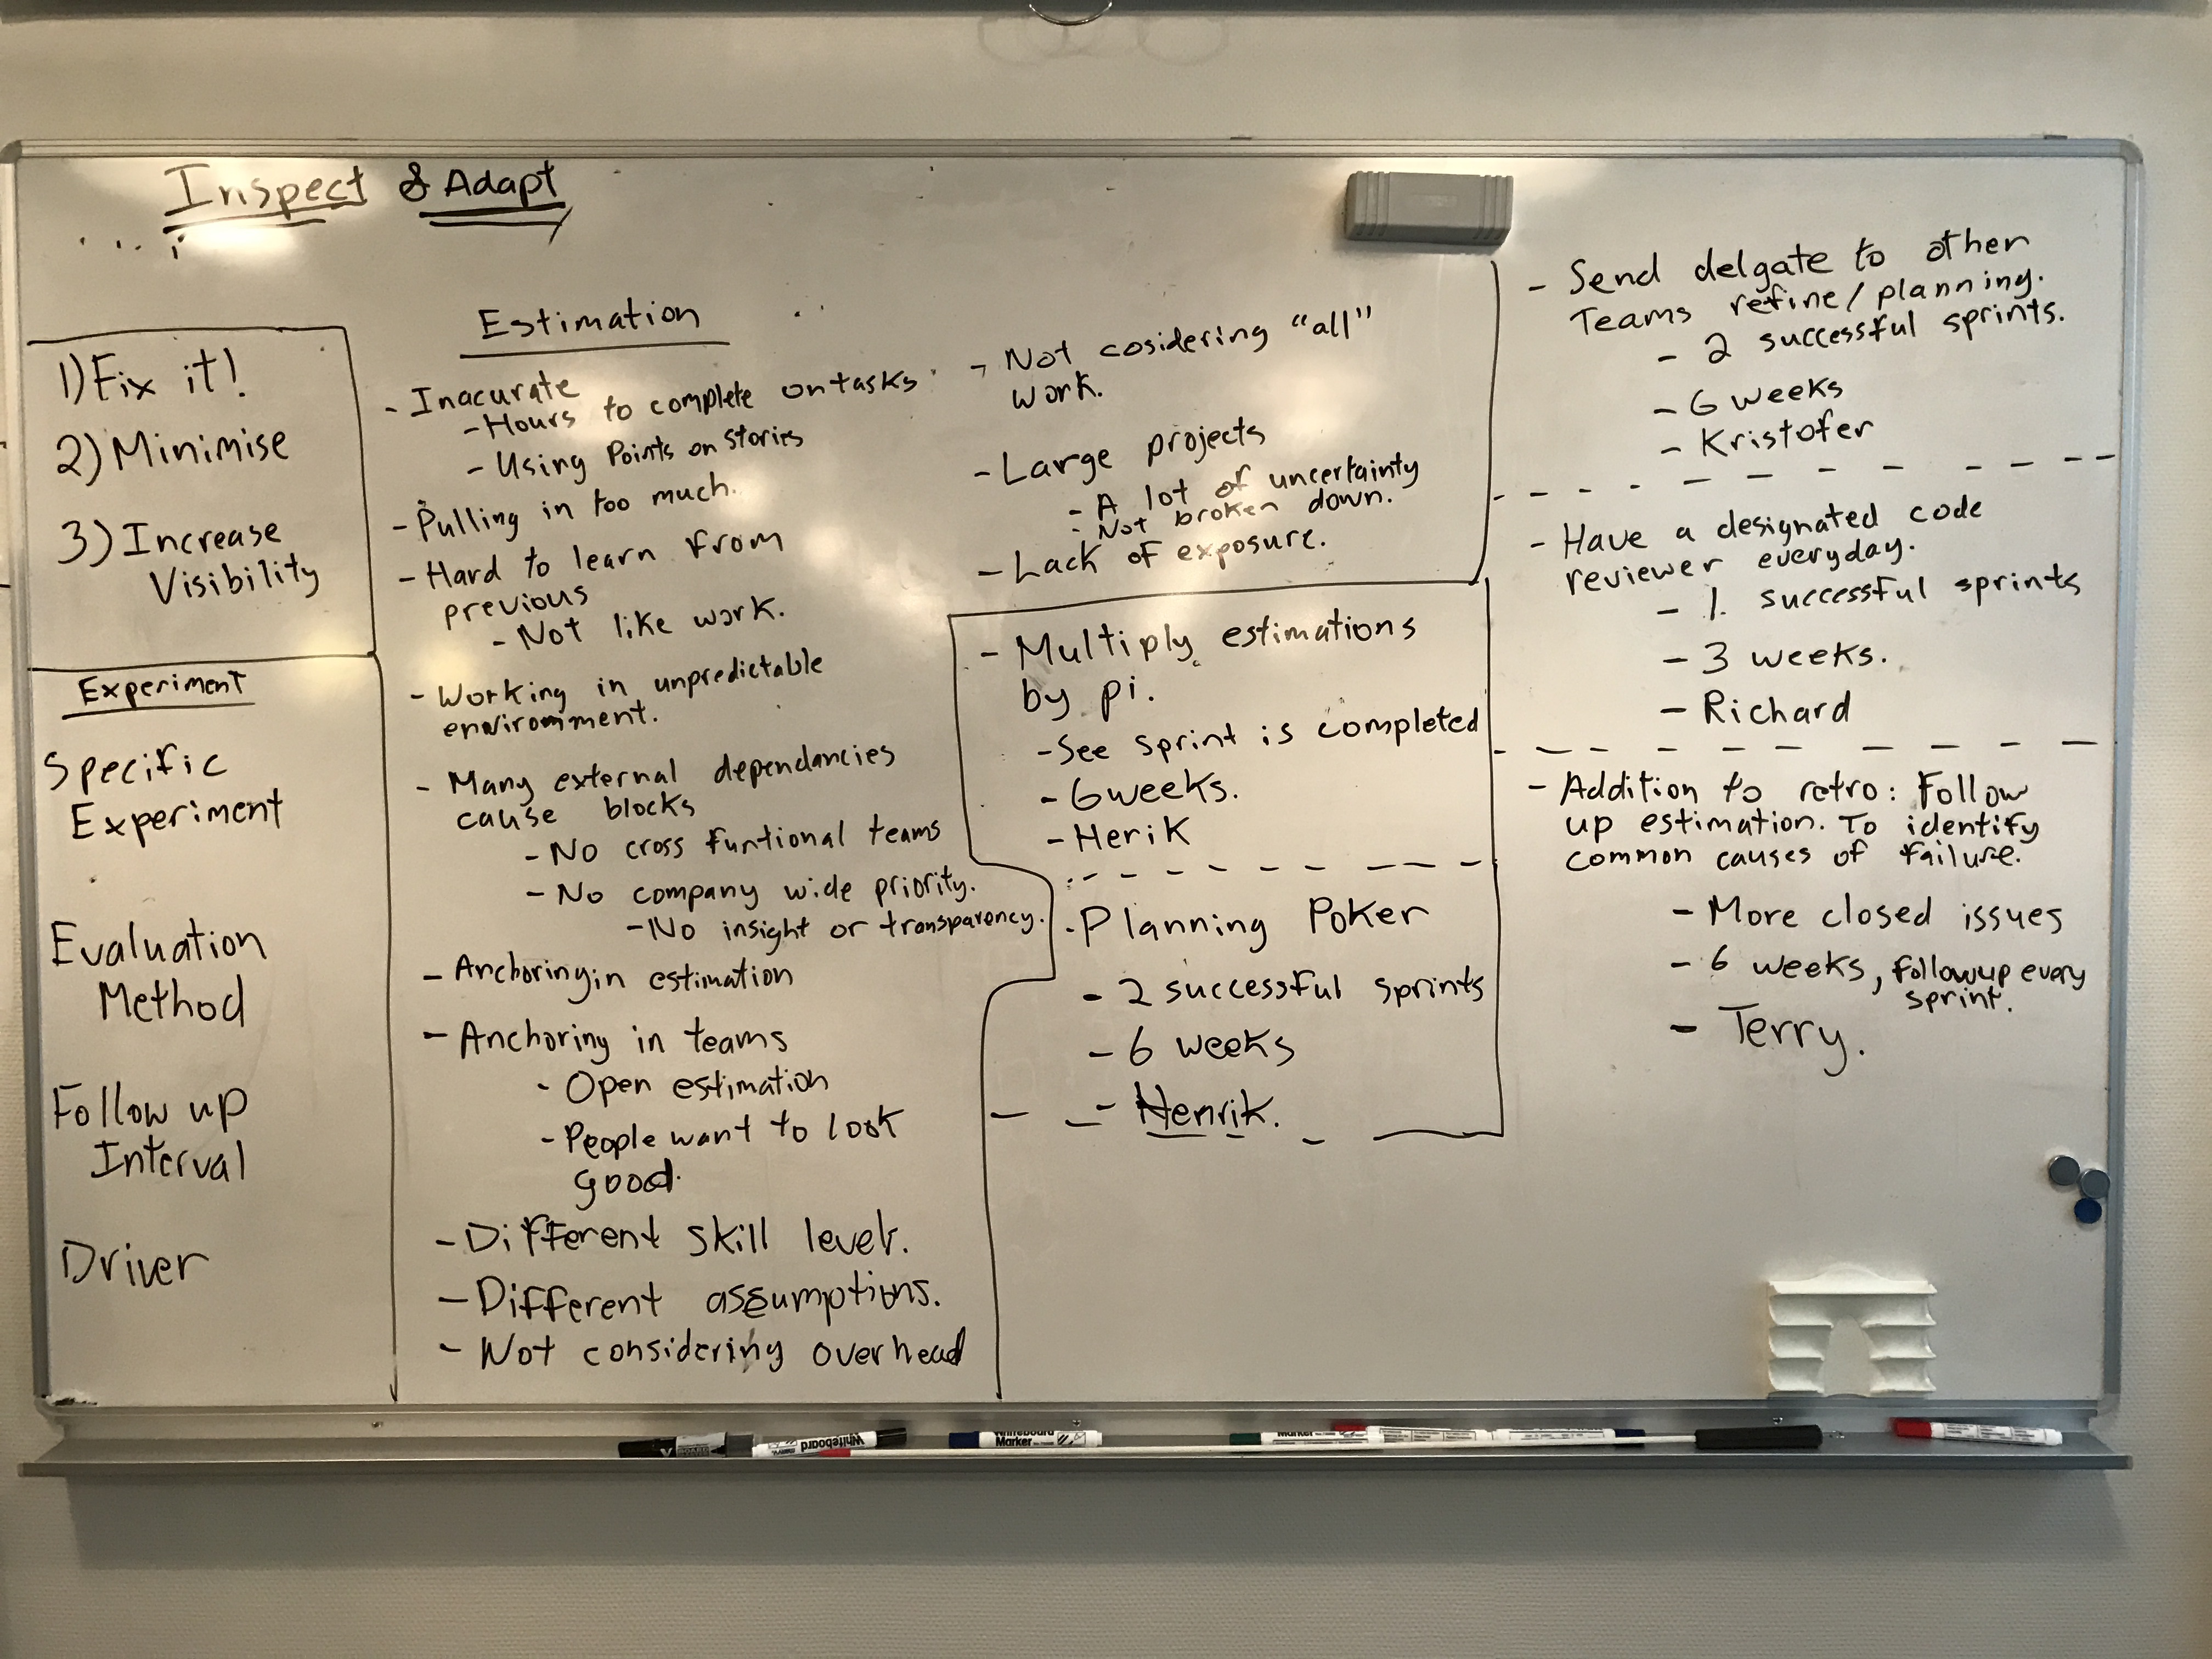 Inspect & Adapt
1) Fix it!
2) Minimise
3) Increase
Visibility
Experiment
Specific
Experiment
Evaluation
Method
Follow up
Interval
Driver
Estimation
- Inacurate
- Hours to complete on tasks
- Using Points on stories
- Pulling in too much.
- Hard to learn from
previous
- Not like work.
- Working in unpredictable
enviromment.
- Many external dependancies
cause blocks
- No cross funtional teams
- No company wide priority.
- No insight or transparency.
- Anchoring in estimation
- Anchoring in teams
- Open estimation
- People want to look
good.
- Different skill level.
- Different assumptions.
- Not considering overhead
- Not cosidering "all"
work.
- Large projects
- A lot of uncertainty
- Not broken down.
- Lack of exposure.
- Multiply estimations
by pi.
- See sprint is completed
- 6 weeks.
- Herik
- Planning Poker
- 2 successful sprints
- 6 weeks
- Henrik.
- Send delgate to other
Teams refine/planning.
- 2 successful sprints.
- 6 weeks
- Kristofer
- Have a designated code
reviewer everyday.
- 1. successful sprints
- 3 weeks.
- Richard
- Addition to retro: Follow
up estimation. To identify
common causes of failure.
- More closed issues
- 6 weeks, followup every
sprint.
- Terry.
Whiteboard
Whiteboard
Marker
Marker